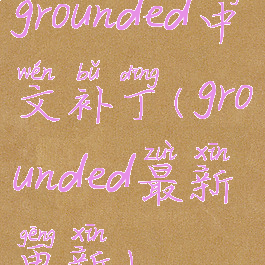 grounded中
wén bǔ dīng
文补丁(gro
zuì xīn
unded最新
gēng xīn
更新)